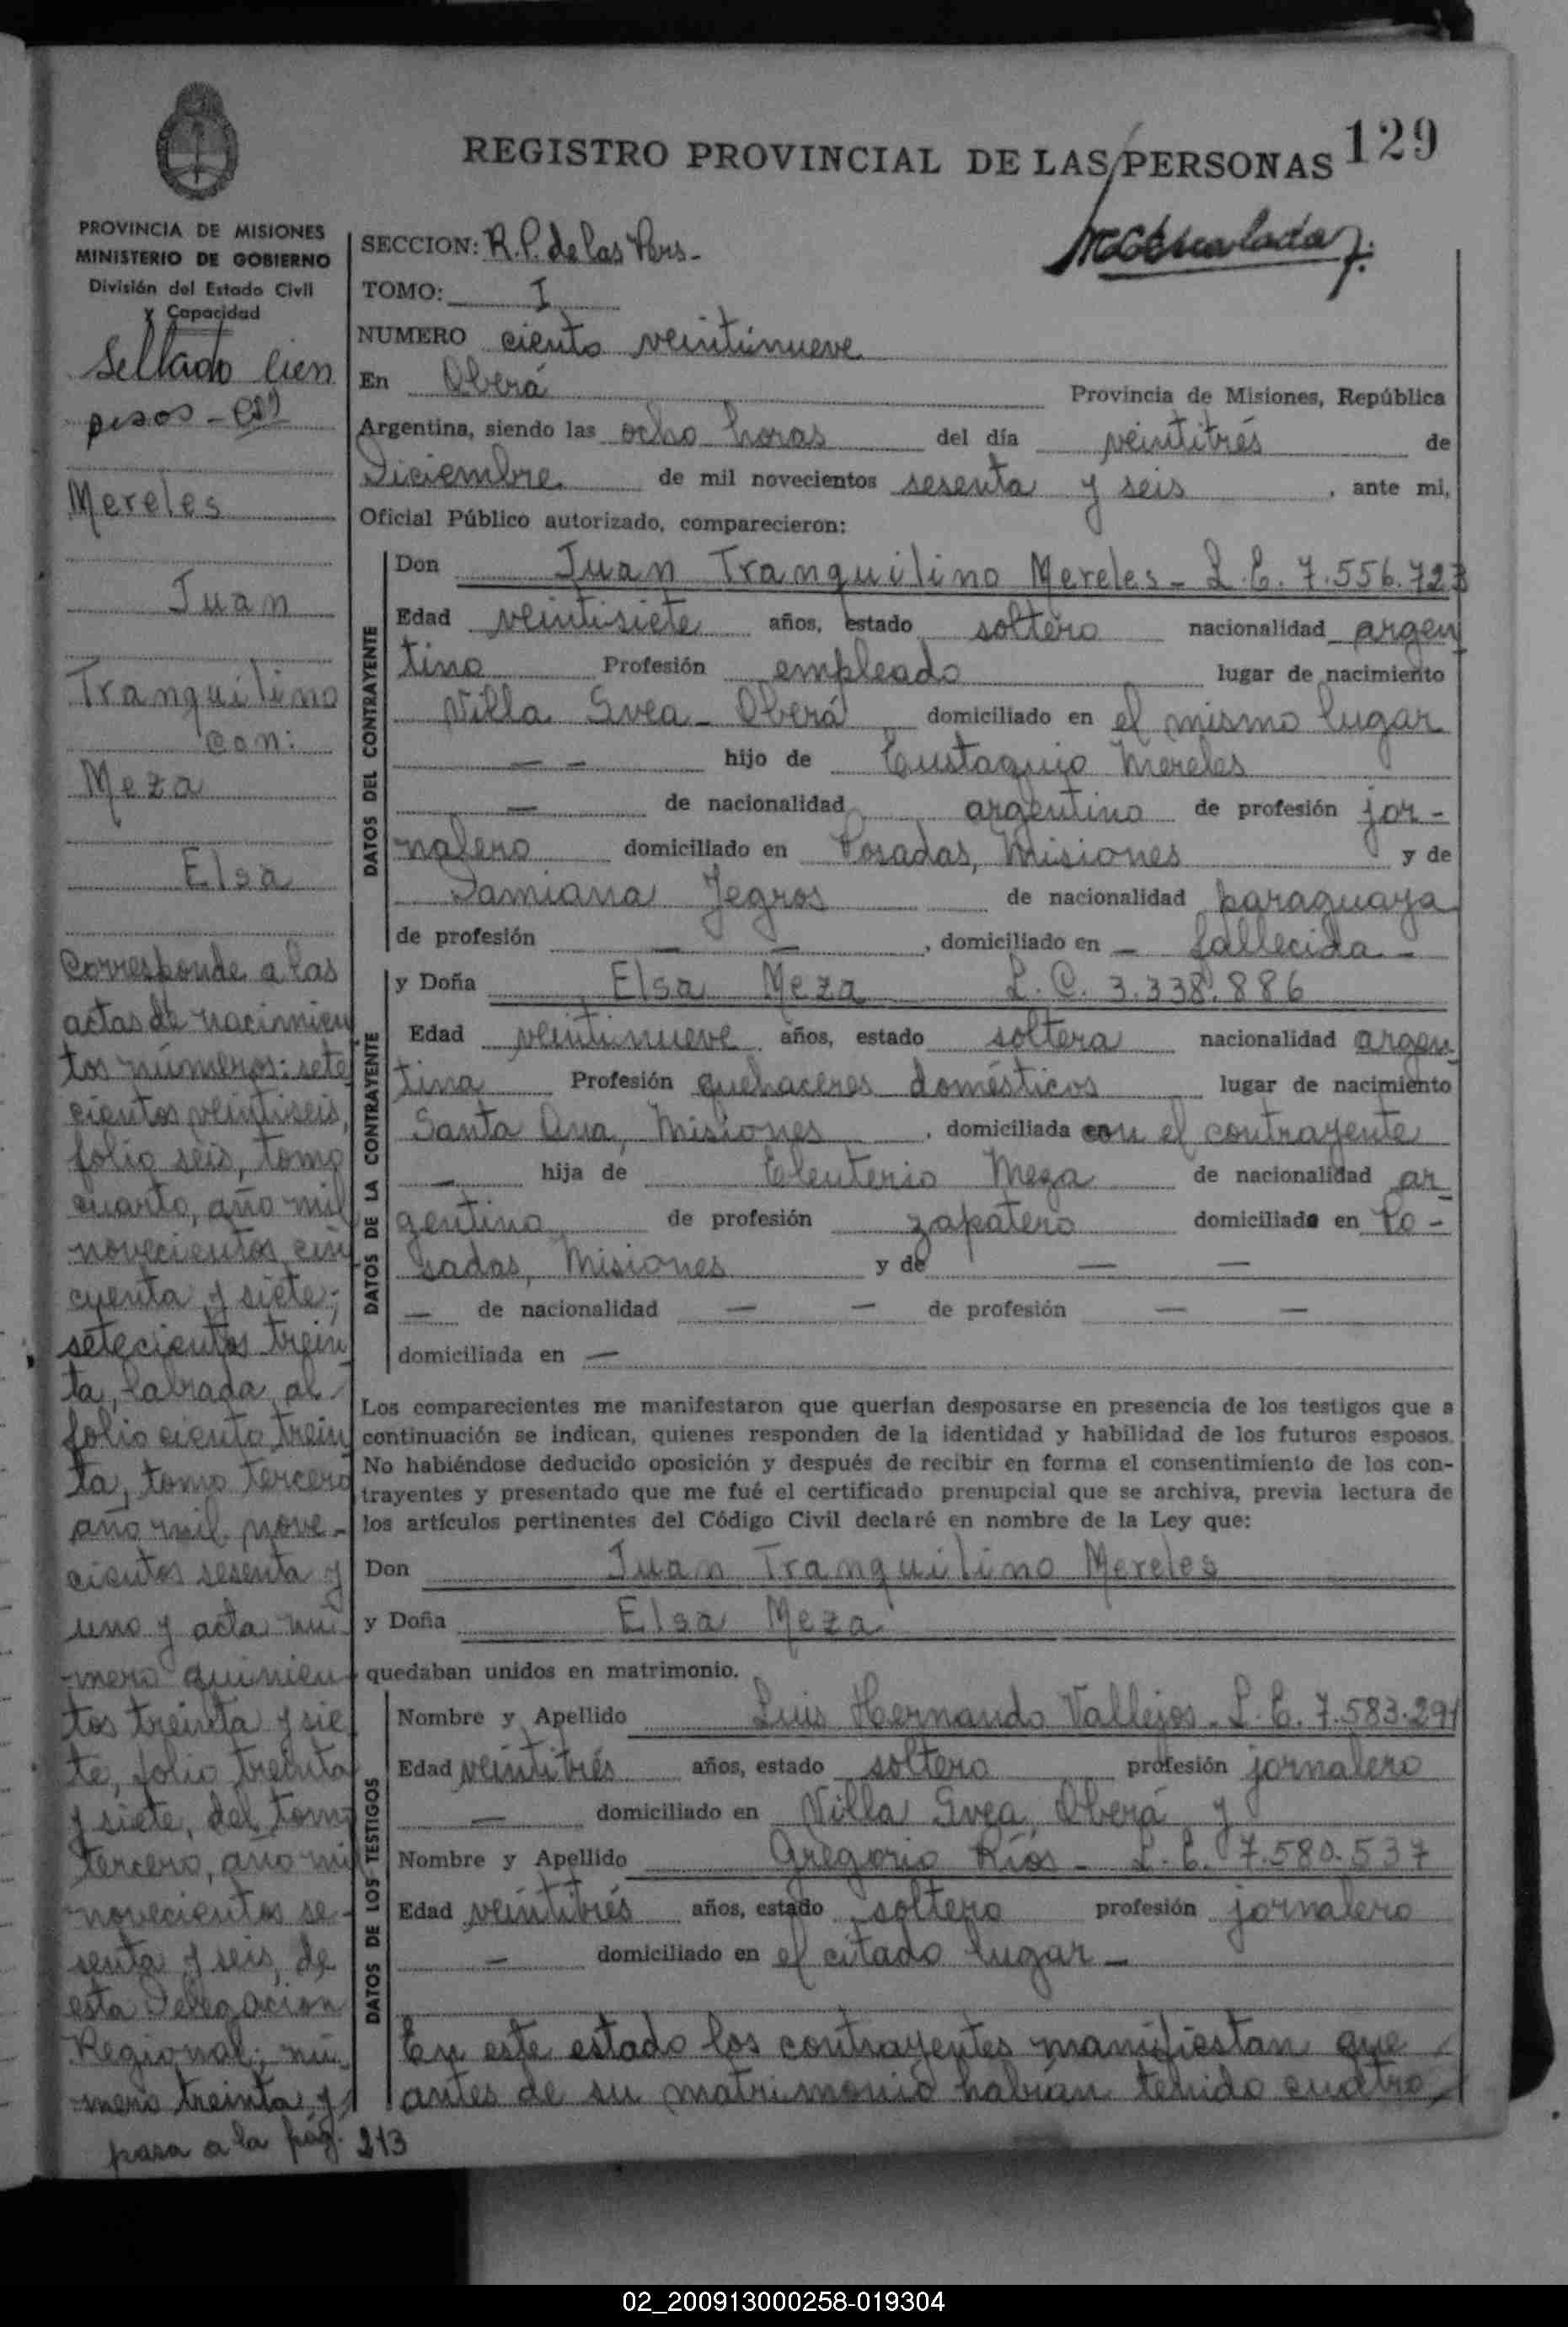 REGISTRO PROVINCIAL DE LAS PERSONAS 129
PROVINCIA DE MISIONES
MINISTERIO DE GOBIERNO
División del Estado Civil
y Capacidad
Sellado cien
pesos -
Mereles
Juan
Tranquilino
con:
Meza
Elsa
Corresponde a las
actas de nacimien
tos números: sete
cientos veintiseis,
folio seis, tomo
cuarto, año mil
novecientos cin
cuenta y siete;
setecientos trein
ta, labrada al
folio ciento trein
ta, tomo tercero
año mil nove-
cientos sesenta y
uno y acta nú
mero quinien
tos treinta y sie
te, folio treinta
y siete, del tomo
tercero, año mil
novecientos se-
senta y seis, de
esta Delegación
Regional; nú-
mero treinta y
pasa a la pág. 213
SECCION: R.P. de las Pers.-
TOMO: I
NUMERO ciento veintinueve
En Oberá Provincia de Misiones, República
Argentina, siendo las ocho horas del día veintitrés de
Diciembre de mil novecientos sesenta y seis, ante mi,
Oficial Público autorizado, comparecieron:
DATOS DEL CONTRAYENTE
Don Juan Tranquilino Mereles - L.E. 7.556.723
Edad veintisiete años, estado soltero nacionalidad argen
tino Profesión empleado lugar de nacimiento
Villa Svea - Oberá domiciliado en el mismo lugar
- - hijo de Eustaquio Mereles
- de nacionalidad argentino de profesión jor-
nalero domiciliado en Posadas, Misiones y de
Damiana Jegros de nacionalidad paraguaya
de profesión - -, domiciliado en - fallecida -
DATOS DE LA CONTRAYENTE
y Doña Elsa Meza L.C. 3.338.886
Edad veintinueve años, estado soltera nacionalidad argen
tina Profesión quehaceres domésticos lugar de nacimiento
Santa Ana, Misiones, domiciliada con el contrayente
- hija de Eleuterio Meza de nacionalidad ar
gentino de profesión zapatero domiciliado en Po-
sadas, Misiones y de - -
- de nacionalidad - - de profesión - -
domiciliada en -
Los comparecientes me manifestaron que querían desposarse en presencia de los testigos que a
continuación se indican, quienes responden de la identidad y habilidad de los futuros esposos.
No habiéndose deducido oposición y después de recibir en forma el consentimiento de los con-
trayentes y presentado que me fué el certificado prenupcial que se archiva, previa lectura de
los artículos pertinentes del Código Civil declaré en nombre de la Ley que:
Don Juan Tranquilino Mereles
y Doña Elsa Meza
quedaban unidos en matrimonio.
DATOS DE LOS TESTIGOS
Nombre y Apellido Luis Hernando Vallejos - L.E. 7.583.291
Edad veintitrés años, estado soltero profesión jornalero
- domiciliado en Villa Svea, Oberá y
Nombre y Apellido Gregorio Ríos - L.E. 7.580.537
Edad veintitrés años, estado soltero profesión jornalero
- domiciliado en el citado lugar -
En este estado los contrayentes manifiestan que
antes de su matrimonio habían tenido cuatro
02_200913000258-019304